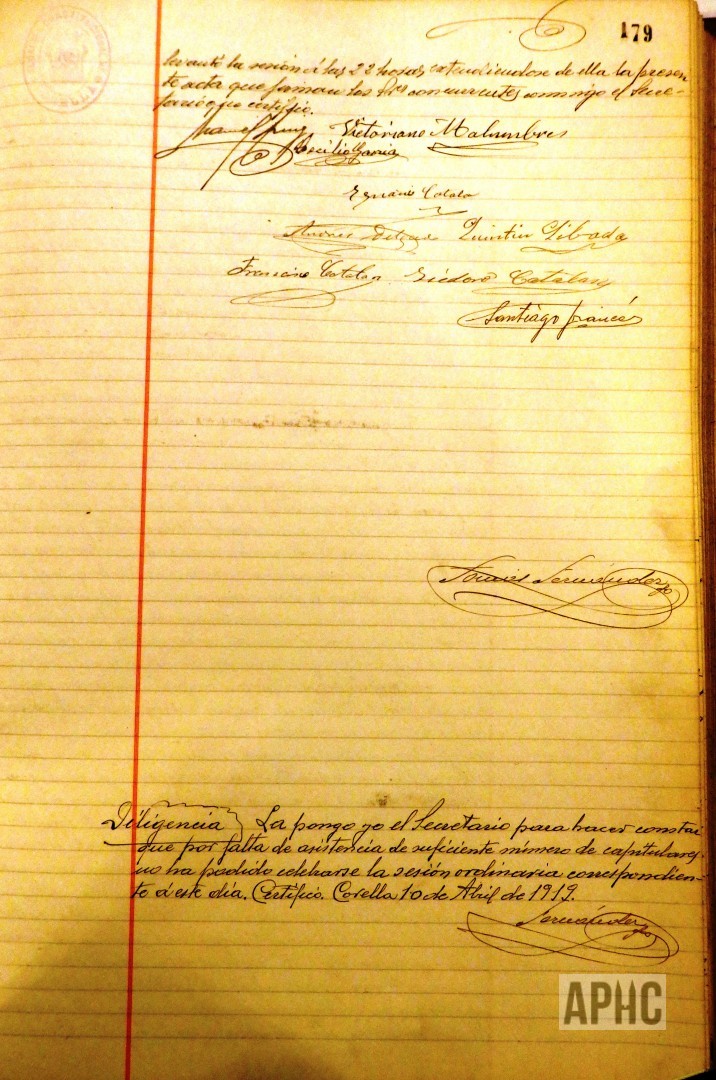 179
levantó la sesión á las 22 horas extendiendose de ella la presen-
te acta que firman los Sres concurrentes conmigo el Secre-
tario que certifico.
Victoriano Malumbres
Cecilio Garcia
Catalan
Quintin Libada
Francisco Catalan Isidoro Catalan
Santiago Francés
Fernández
Diligencia La pongo yo el Secretario para hacer constar
que por falta de asistencia de suficiente número de capitulares
no ha podido celebrarse la sesión ordinaria correspondien-
te á este día. Certifico. Corella 10 de Abril de 1919.
Fernández
APHC